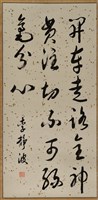 开车走路全神
贯注切不可
分心
李静波